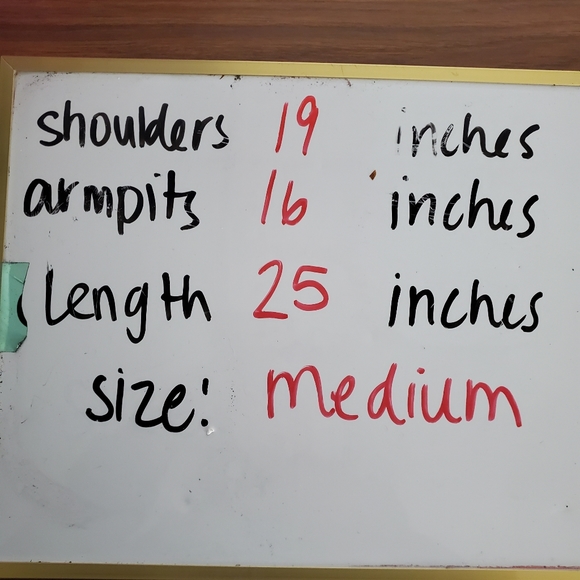 shoulders 19 inches
armpits 16 inches
length 25 inches
size: medium